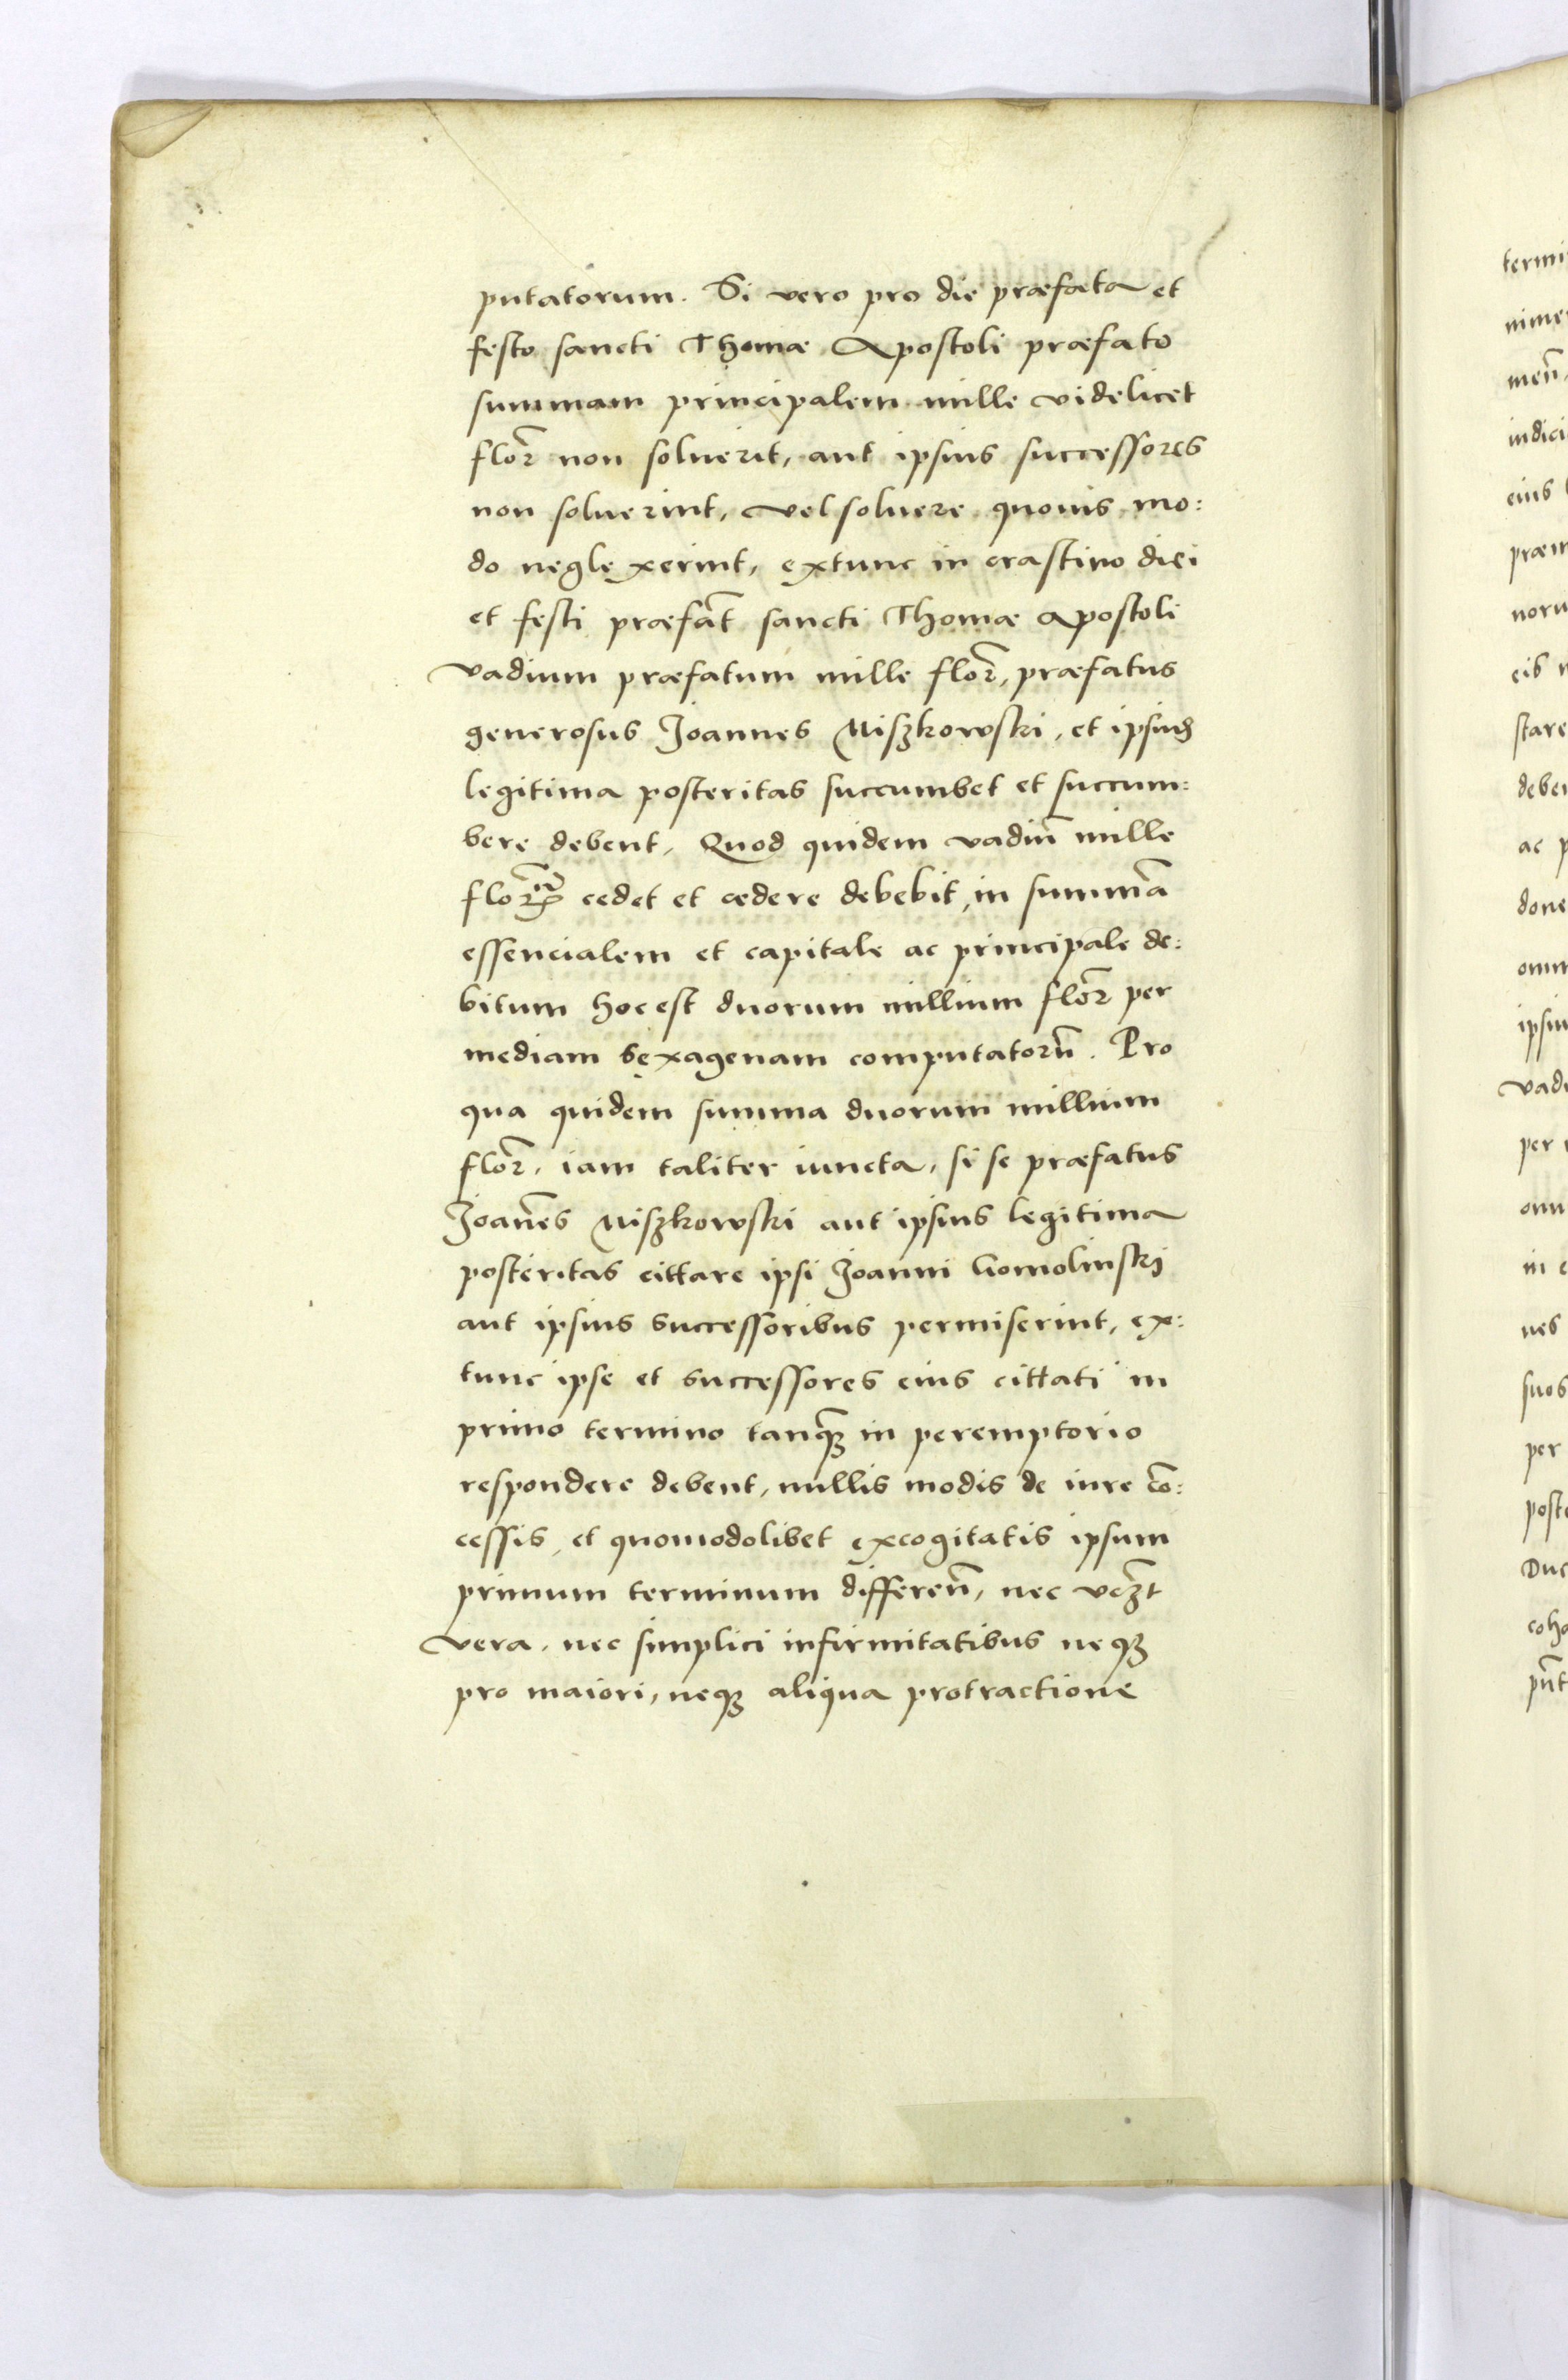 putatorum. Si vero pro die præfata et
festo sancti Thomæ Apostoli præfato
summam principalem mille videlicet
flor̃ non soluerit, aut ipsius successores
non soluerint, vel soluere quouis mo:
do neglexerint, extunc in crastino diei
et festi præfat̃ sancti Thomæ Apostoli
vadium præfatum mille flor̃, præfatus
generosus Joannes Niszkowski, et ipsius
legitima posteritas succumbet et succum:
bere debent, Quod quidem vadiũ mille
cedet et cedere debebit, in summã
essencialem et capitale ac principale de:
bitum hoc est duorum millium flor̃ per
mediam sexagenam computatorũ. Pro
qua quidem summa duorum millium
flor̃, iam taliter iuncta, si se præfatus
Joañes Niszkowski aut ipsius legitima
posteritas cittare ipsi Joanni Gomolinskj
aut ipsius successoribus permiserint, ex:
tunc ipse et successores eius cittati in
primo termino tanqȝ in peremptorio
respondere debent, nullis modis de iure cõ:
cessis, et quomodolibet excogitatis ipsum
primum terminum differeñ, nec vczt
vera, nec simplici infirmitatibus neqȝ
pro maiori, neqȝ aliqua protractione
termi
nime
meñ
indici
eius
præm
noru
eis
stare
deben
ac p
done
omn
ipsiu
vadi
per
omn
in
nes
suos
per
poste
Duc
coh
pñt